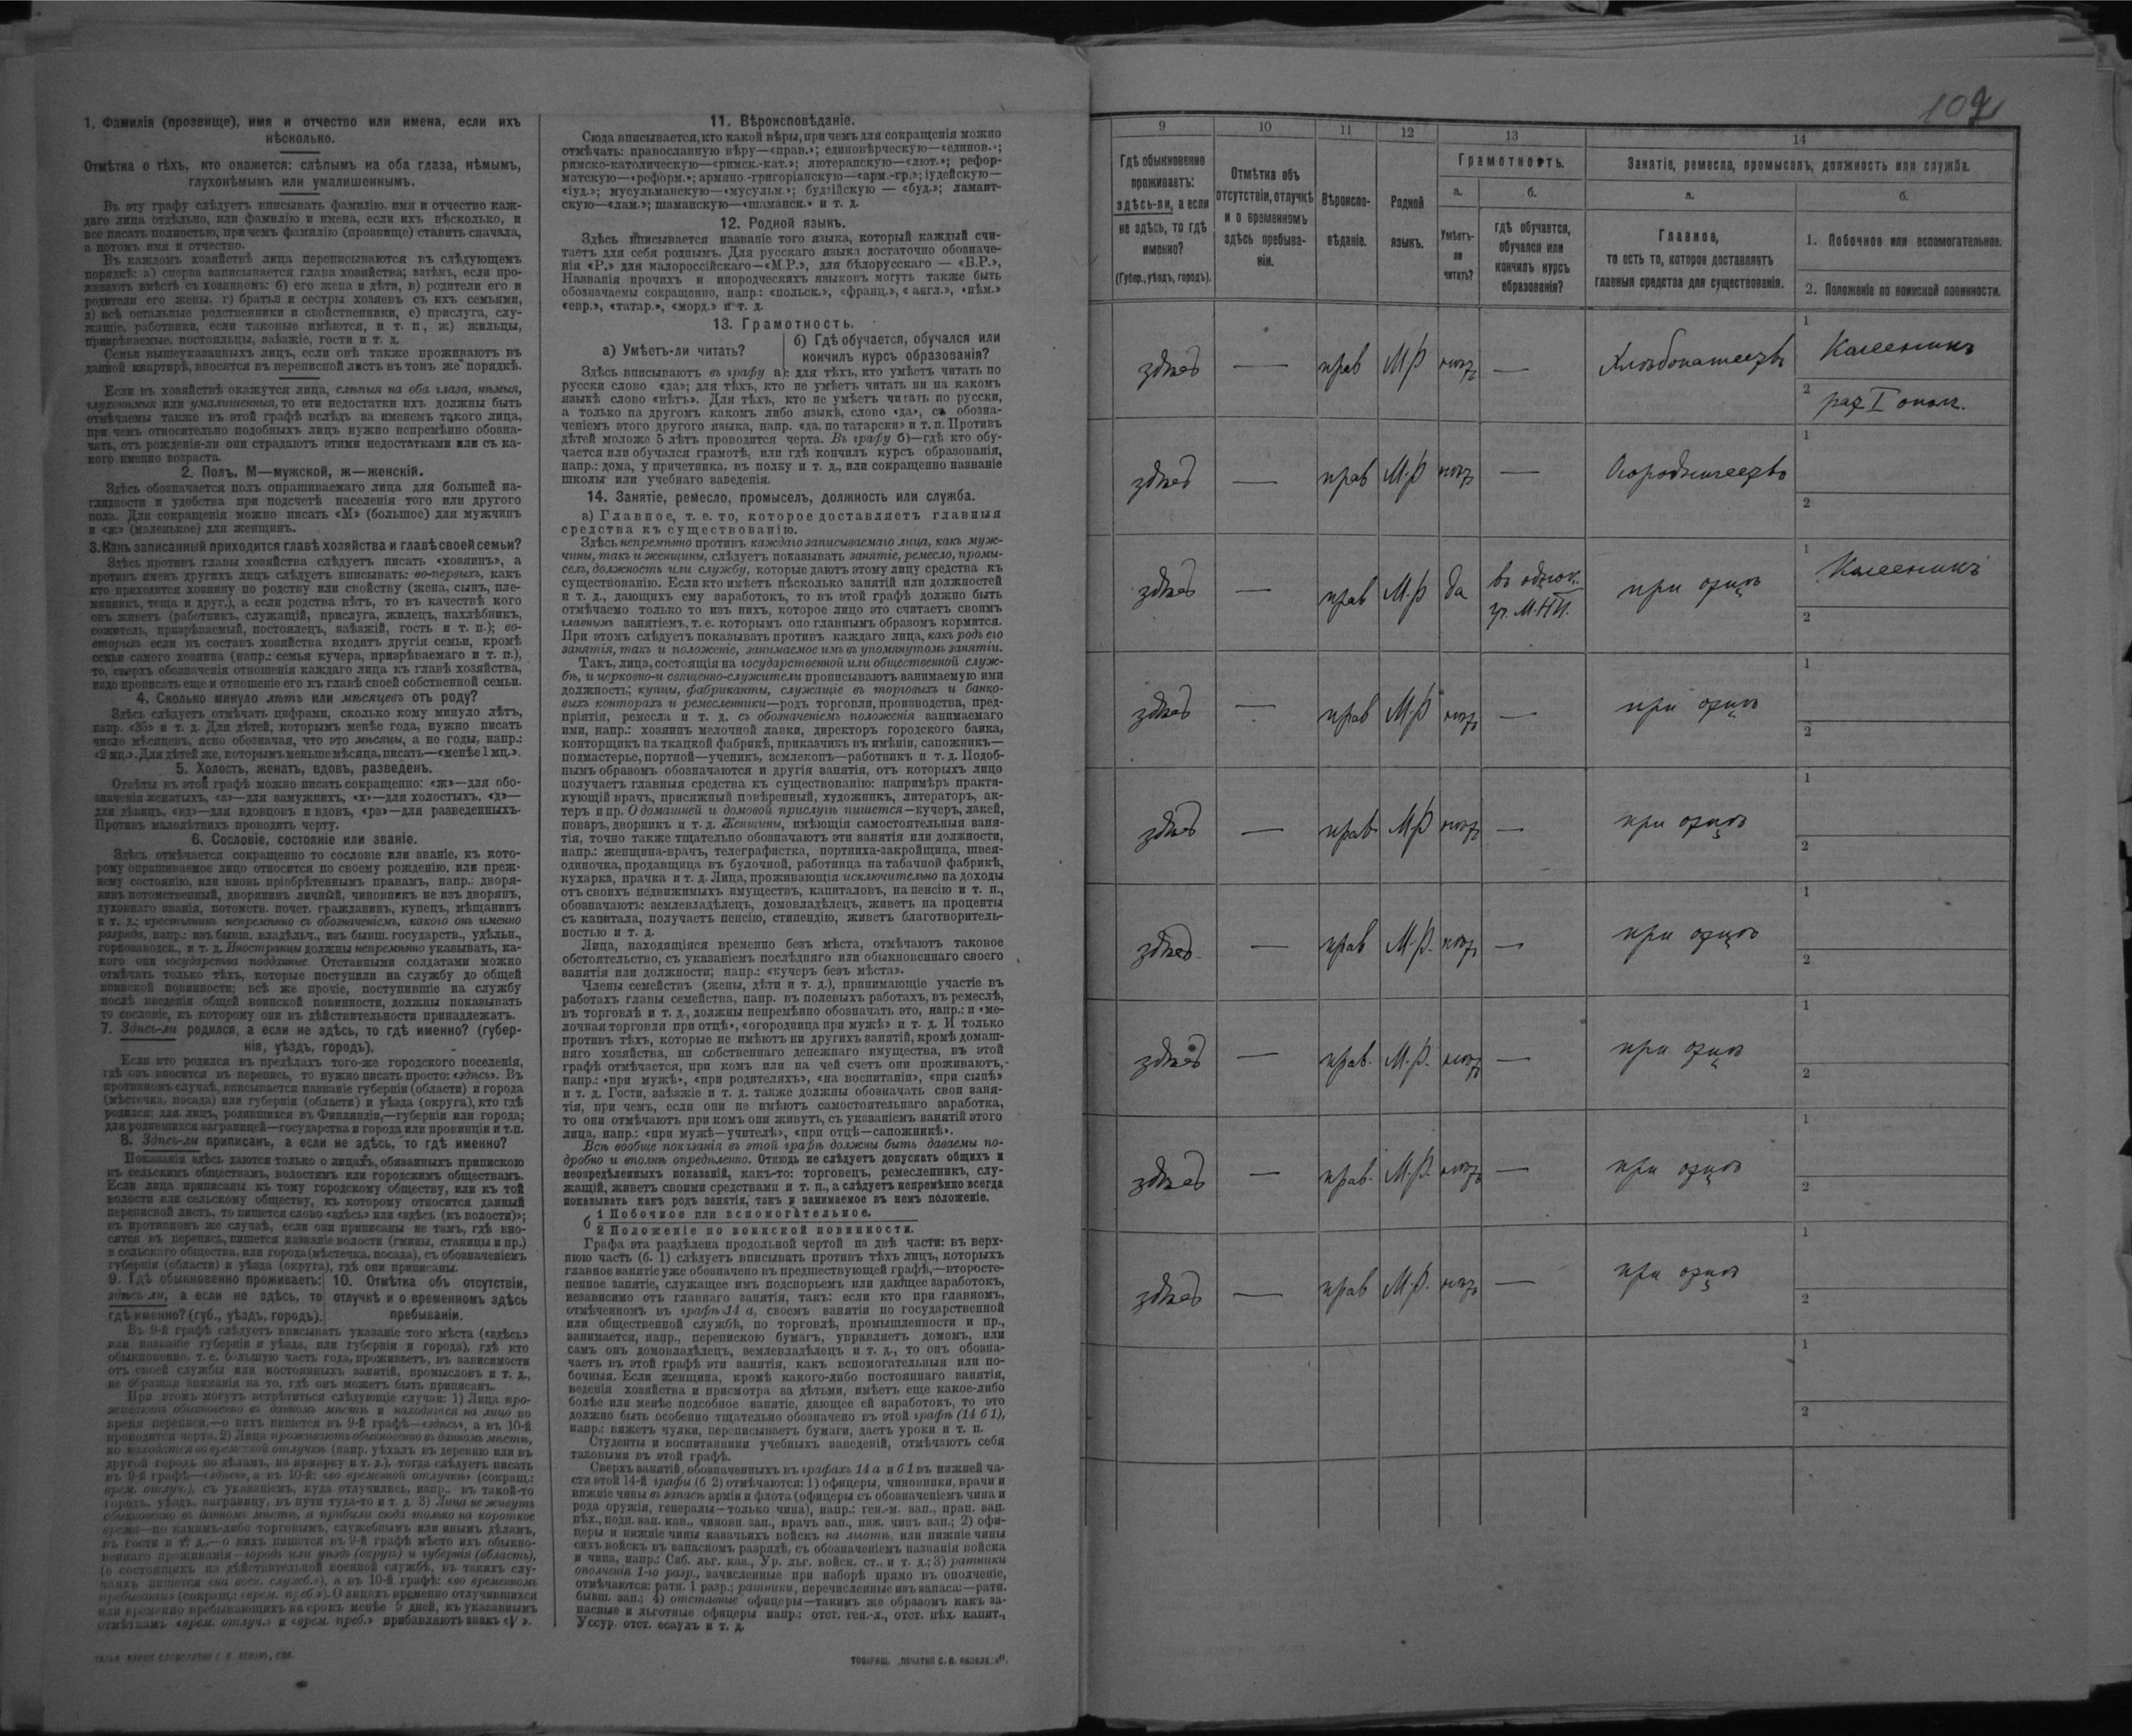 1. Фамилія (прозвище), имя и отчество или имена, если ихъ
нѣсколько.
Отмѣтка о тѣхъ, кто окажется: слѣпымъ на оба глаза, нѣмымъ,
глухонѣмымъ или умалишеннымъ.
Въ эту графу слѣдуетъ вписывать фамилію, имя и отчество каж-
даго лица отдѣльно, или фамилію и имена, если ихъ нѣсколько, и
все писать полностью, при чемъ фамилію (прозвище) ставить сначала,
а потомъ имя и отчество.
Въ каждомъ хозяйствѣ лица переписываются въ слѣдующемъ
порядкѣ: а) сперва записывается глава хозяйства; затѣмъ, если про-
живаютъ вмѣстѣ съ хозяиномъ: б) его жена и дѣти, в) родители его и
родители его жены, г) братья и сестры хозяевъ съ ихъ семьями,
д) всѣ остальные родственники и свойственники, е) прислуга, слу-
жащіе, работники, если таковые имѣются, и т. п., ж) жильцы,
призрѣваемые, постояльцы, заѣзжіе, гости и т. д.
Семьи вышеуказанныхъ лицъ, если онѣ также проживаютъ въ
данной квартирѣ, вносятся въ переписной листъ въ томъ же порядкѣ.
Если въ хозяйствѣ окажутся лица, слѣпыя на оба глаза, нѣмыя,
глухонѣмыя или умалишенныя, то эти недостатки ихъ должны быть
отмѣчаемы также въ этой графѣ вслѣдъ за именемъ такого лица,
при чемъ относительно подобныхъ лицъ нужно непремѣнно обозна-
чать, отъ рожденія-ли они страдаютъ этими недостатками или съ ка-
кого именно возраста.
2. Полъ. М—мужской, ж—женскій.
Здѣсь обозначается полъ опрашиваемаго лица для большей на-
глядности и удобства при подсчетѣ населенія того или другого
пола. Для сокращенія можно писать «М» (большое) для мужчинъ
и «ж» (маленькое) для женщинъ.
3. Какъ записанный приходится главѣ хозяйства и главѣ своей семьи?
Здѣсь противъ главы хозяйства слѣдуетъ писать «хозяинъ», а
противъ именъ другихъ лицъ слѣдуетъ вписывать: во-первыхъ, какъ
кто приходится хозяину по родству или свойству (жена, сынъ, пле-
мянникъ, теща и друг.), а если родства нѣтъ, то въ качествѣ кого
онъ живетъ (работникъ, служащій, прислуга, жилецъ, нахлѣбникъ,
сожитель, призрѣваемый, постоялецъ, заѣзжій, гость и т. п.); во-
вторыхъ если въ составъ хозяйства входятъ другія семьи, кромѣ
семьи самого хозяина (напр.: семья кучера, призрѣваемаго и т. п.),
то, сверхъ обозначенія отношенія каждаго лица къ главѣ хозяйства,
надо прописать еще и отношеніе его къ главѣ своей собственной семьи.
4. Сколько минуло лѣтъ или мѣсяцевъ отъ роду?
Здѣсь слѣдуетъ отмѣчать цифрами, сколько кому минуло лѣтъ,
напр. «35» и т. д. Для дѣтей, которымъ менѣе года, нужно писать
число мѣсяцевъ, ясно обозначая, что это мѣсяцы, а не годы, напр.:
«2 мц.». Для дѣтей же, которымъ меньше мѣсяца, писать—«менѣе 1 мц.».
5. Холостъ, женатъ, вдовъ, разведенъ.
Отвѣты въ этой графѣ можно писать сокращенно: «ж»—для обо-
значенія женатыхъ, «з»—для замужнихъ, «х»—для холостыхъ, «д»—
для дѣвицъ, «вд»—для вдовцовъ и вдовъ, «рз»—для разведенныхъ.
Противъ малолѣтнихъ проводить черту.
6. Сословіе, состояніе или званіе.
Здѣсь отмѣчается сокращенно то сословіе или званіе, къ кото-
рому опрашиваемое лицо относится по своему рожденію, или преж-
нему состоянію, или вновь пріобрѣтеннымъ правамъ, напр.: дворя-
нинъ потомственный, дворянинъ личный, чиновникъ не изъ дворянъ,
духовнаго званія, потомств. почет. гражданинъ, купецъ, мѣщанинъ
и т. д.; крестьянинъ непремѣнно съ обозначеніемъ, какого онъ именно
разряда, напр.: изъ бывш. владѣльч., изъ бывш. государств., удѣльн.,
горнозаводск., и т. д. Иностранцы должны непремѣнно указывать, ка-
кого они государства подданные. Отставными солдатами можно
отмѣчать только тѣхъ, которые поступили на службу до общей
воинской повинности; всѣ же прочіе, поступившіе на службу
послѣ введенія общей воинской повинности, должны показывать
то сословіе, къ которому они въ дѣйствительности принадлежатъ.
7. Здѣсь-ли родился, а если не здѣсь, то гдѣ именно? (губер-
нія, уѣздъ, городъ).
Если кто родился въ предѣлахъ того-же городского поселенія,
гдѣ онъ вносится въ перепись, то нужно писать просто: «здѣсь». Въ
противномъ случаѣ, вписывается названіе губерніи (области) и города
(мѣстечка, посада) или губерніи (области) и уѣзда (округа), кто гдѣ
родился: для лицъ, родившихся въ Финляндіи,—губерніи или города;
для родившихся заграницей—государства и города или провинціи и т.п.
8. Здѣсь-ли приписанъ, а если не здѣсь, то гдѣ именно?
Показанія здѣсь даются только о лицахъ, обязанныхъ припискою
къ сельскимъ обществамъ, волостямъ или городскимъ обществамъ.
Если лица приписаны къ тому городскому обществу, или къ той
волости или сельскому обществу, къ которому относится данный
переписной листъ, то пишется слово «здѣсь» или «здѣсь (къ волости)»;
въ противномъ же случаѣ, если они приписаны не тамъ, гдѣ вно-
сятся въ перепись, пишется названіе волости (гмины, станицы и пр.)
и сельскаго общества, или города (мѣстечка, посада), съ обозначеніемъ
губерніи (области) и уѣзда (округа), гдѣ они приписаны.
9. Гдѣ обыкновенно проживаетъ:
здѣсь ли, а если не здѣсь, то
гдѣ именно? (губ., уѣздъ, городъ).
10. Отмѣтка объ отсутствіи,
отлучкѣ и о временномъ здѣсь
пребываніи.
Въ 9-й графѣ слѣдуетъ вписывать указаніе того мѣста («здѣсь»
или названіе губерніи и уѣзда, или губерніи и города), гдѣ кто
обыкновенно, т. е. большую часть года, проживаетъ, въ зависимости
отъ своей службы или постоянныхъ занятій, промысловъ и т. д.,
не обращая вниманія на то, гдѣ онъ можетъ быть приписанъ.
При этомъ могутъ встрѣтиться слѣдующіе случаи: 1) Лица про-
живаютъ обыкновенно въ данномъ мѣстѣ и находятся на лицо во
время переписи,—о нихъ пишется въ 9-й графѣ—«здѣсь», а въ 10-й
проводится черта. 2) Лица проживаютъ обыкновенно въ данномъ мѣстѣ,
но находятся во временной отлучкѣ (напр. уѣхалъ въ деревню или въ
другой городъ по дѣламъ, на ярмарку и т. д.), тогда слѣдуетъ писать
въ 9-й графѣ—«здѣсь», а въ 10-й: «во временной отлучкѣ» (сокращ.:
врем. отлуч.), съ указаніемъ, куда отлучились, напр.: въ такой-то
городъ, уѣздъ, заграницу, въ пути туда-то и т. д. 3) Лица не живутъ
обыкновенно въ данномъ мѣстѣ, а прибыли сюда только на короткое
время—по какимъ-либо торговымъ, служебнымъ или инымъ дѣламъ,
въ гости и т. д.,—о нихъ пишется въ 9-й графѣ мѣсто ихъ обыкно-
веннаго проживанія—городъ или уѣздъ (округъ) и губернія (область),
(о состоящихъ на дѣйствительной военной службѣ, въ такихъ слу-
чаяхъ пишется «на воен. служб.»), а въ 10-й графѣ: «во временномъ
пребываніи» (сокращ: «врем. преб.»). О лицахъ временно отлучившихся
или временно пребывающихъ на срокъ менѣе 5 дней, къ указаннымъ
отмѣткамъ «врем. отлуч.» и «врем. преб.» прибавляютъ знакъ «V».
11. Вѣроисповѣданіе.
Сюда вписывается, кто какой вѣры, при чемъ для сокращенія можно
отмѣчать: православную вѣру—«прав.»; единовѣрческую—«единов.»;
римско-католическую—«римск.-кат.»; лютеранскую—«лют.»; рефор-
матскую—«реформ.»; армяно-григоріанскую—«арм.-гр.»; іудейскую—
«іуд.»; мусульманскую—«мусульм.»; буддійскую — «буд.»; ламаит-
скую—«лам.»; шаманскую—«шаманск.» и т. д.
12. Родной языкъ.
Здѣсь вписывается названіе того языка, который каждый счи-
таетъ для себя роднымъ. Для русскаго языка достаточно обозначе-
нія «Р.» для малороссійскаго—«М.Р.», для бѣлорусскаго — «Б.Р.»,
Названія прочихъ и инородческихъ языковъ могутъ также быть
обозначаемы сокращенно, напр.: «польск.», «франц.», «англ.», «нѣм.»
«евр.», «татар.», «морд.» и т. д.
13. Грамотность.
а) Умѣетъ-ли читать?
б) Гдѣ обучается, обучался или
кончилъ курсъ образованія?
Здѣсь вписываютъ въ графу а): для тѣхъ, кто умѣетъ читать по
русски слово «да»; для тѣхъ, кто не умѣетъ читать ни на какомъ
языкѣ слово «нѣтъ». Для тѣхъ, кто не умѣетъ читать по русски,
а только на другомъ какомъ либо языкѣ, слово «да», съ обозна-
ченіемъ этого другого языка, напр. «да, по татарски» и т. п. Противъ
дѣтей моложе 5 лѣтъ проводится черта. Въ графу б)—гдѣ кто обу-
чается или обучался грамотѣ, или гдѣ кончилъ курсъ образованія,
напр.: дома, у причетника, въ полку и т. д., или сокращенно названіе
школы или учебнаго заведенія.
14. Занятіе, ремесло, промыселъ, должность или служба.
а) Главное, т. е. то, которое доставляетъ главныя
средства къ существованію.
Здѣсь непремѣнно противъ каждаго записываемаго лица, какъ муж-
чины, такъ и женщины, слѣдуетъ показывать занятіе, ремесло, промы-
селъ, должность или службу, которые даютъ этому лицу средства къ
существованію. Если кто имѣетъ нѣсколько занятій или должностей
и т. д., дающихъ ему заработокъ, то въ этой графѣ должно быть
отмѣчаемо только то изъ нихъ, которое лицо это считаетъ своимъ
главнымъ занятіемъ, т. е. которымъ оно главнымъ образомъ кормится.
При этомъ слѣдуетъ показывать противъ каждаго лица, какъ родъ его
занятія, такъ и положеніе, занимаемое имъ въ упомянутомъ занятіи.
Такъ, лица, состоящія на государственной или общественной служ-
бѣ, и церковно-и священно-служители прописываютъ занимаемую ими
должность; купцы, фабриканты, служащіе въ торговыхъ и банко-
выхъ конторахъ и ремесленники—родъ торговли, производства, пред-
пріятія, ремесла и т. д. съ обозначеніемъ положенія занимаемаго
ими, напр.: хозяинъ мелочной лавки, директоръ городского банка,
конторщикъ на ткацкой фабрикѣ, приказчикъ въ имѣніи, сапожникъ—
подмастерье, портной—ученикъ, землекопъ—работникъ и т. д. Подоб-
нымъ образомъ обозначаются и другія занятія, отъ которыхъ лицо
получаетъ главныя средства къ существованію: напримѣръ практи-
кующій врачъ, присяжный повѣренный, художникъ, литераторъ, ак-
теръ и пр. О домашней и домовой прислугѣ пишется—кучеръ, лакей,
поваръ, дворникъ и т. д. Женщины, имѣющія самостоятельныя заня-
тія, точно также тщательно обозначаютъ эти занятія или должности,
напр.: женщина-врачъ, телеграфистка, портниха-закройщица, швея-
одиночка, продавщица въ булочной, работница на табачной фабрикѣ,
кухарка, прачка и т. д. Лица, проживающія исключительно на доходы
отъ своихъ недвижимыхъ имуществъ, капиталовъ, на пенсію и т. п.,
обозначаютъ: землевладѣлецъ, домовладѣлецъ, живетъ на проценты
съ капитала, получаетъ пенсію, стипендію, живетъ благотворитель-
ностью и т. д.
Лица, находящіяся временно безъ мѣста, отмѣчаютъ таковое
обстоятельство, съ указаніемъ послѣдняго или обыкновеннаго своего
занятія или должности; напр.: «кучеръ безъ мѣста».
Члены семействъ (жены, дѣти и т. д.), принимающіе участіе въ
работахъ главы семейства, напр. въ полевыхъ работахъ, въ ремеслѣ,
въ торговлѣ и т. д., должны непремѣнно обозначать это, напр.: и «ме-
лочная торговля при отцѣ», «огородница при мужѣ» и т. д. И только
противъ тѣхъ, которые не имѣютъ ни другихъ занятій, кромѣ домаш-
няго хозяйства, ни собственнаго денежнаго имущества, въ этой
графѣ отмѣчается, при комъ или на чей счетъ они проживаютъ,
напр.: «при мужѣ», «при родителяхъ», «на воспитаніи», «при сынѣ»
и т. д. Гости, заѣзжіе и т. д. также должны обозначать свои заня-
тія, при чемъ, если они не имѣютъ самостоятельнаго заработка,
то они отмѣчаютъ при комъ они живутъ, съ указаніемъ занятій этого
лица, напр.: «при мужѣ—учителѣ», «при отцѣ—сапожникѣ».
Всѣ вообще показанія въ этой графѣ должны быть даваемы по-
дробно и вполнѣ опредѣленно. Отнюдь не слѣдуетъ допускать общихъ и
неопредѣленныхъ показаній, какъ-то: торговецъ, ремесленникъ, слу-
жащій, живетъ своими средствами и т. п., а слѣдуетъ непремѣнно всегда
показывать какъ родъ занятія, такъ и занимаемое въ немъ положеніе.
б 1 Побочное или вспомогательное.
2 Положеніе по воинской повинности.
Графа эта раздѣлена продольной чертой на двѣ части: въ верх-
нюю часть (б. 1) слѣдуетъ вписывать противъ тѣхъ лицъ, которыхъ
главное занятіе уже обозначено въ предшествующей графѣ,—второсте-
пенное занятіе, служащее имъ подспорьемъ или дающее заработокъ,
независимо отъ главнаго занятія, такъ: если кто при главномъ,
отмѣченномъ въ графѣ 14 а, своемъ занятіи по государственной
или общественной службѣ, по торговлѣ, промышленности и пр.,
занимается, напр., перепискою бумагъ, управляетъ домомъ, или
самъ онъ домовладѣлецъ, землевладѣлецъ и т. д., то онъ обозна-
чаетъ въ этой графѣ эти занятія, какъ вспомогательныя или по-
бочныя. Если женщина, кромѣ какого-либо постояннаго занятія,
веденія хозяйства и присмотра за дѣтьми, имѣетъ еще какое-либо
болѣе или менѣе подсобное занятіе, дающее ей заработокъ, то это
должно быть особенно тщательно обозначено въ этой графѣ (14 б 1),
напр.: вяжетъ чулки, переписываетъ бумаги, даетъ уроки и т. п.
Студенты и воспитанники учебныхъ заведеній, отмѣчаютъ себя
таковыми въ этой графѣ.
Сверхъ занятій, обозначенныхъ въ графахъ 14 а и б 1 въ нижней ча-
сти этой 14-й графы (б 2) отмѣчаются: 1) офицеры, чиновники, врачи и
нижніе чины въ запасѣ арміи и флота (офицеры съ обозначеніемъ чина и
рода оружія, генералы—только чина), напр.: ген.-м. зап., прап. зап.
пѣх., подп. зап. кав., чиновн. зап., врачъ зап., ниж. чинъ зап.; 2) офи-
церы и нижніе чины казачьихъ войскъ на льготѣ, или нижніе чины
сихъ войскъ въ запасномъ разрядѣ, съ обозначеніемъ названія войска
и чина, напр.: Сиб. льг. каз., Ур. льг. войск. ст., и т. д.; 3) ратники
ополченія 1-го разр., зачисленные при наборѣ прямо въ ополченіе,
отмѣчаются: ратн. 1 разр.; ратники, перечисленные изъ запаса:—ратн.
бывш. зап.; 4) отставные офицеры—такимъ же образомъ какъ за-
пасные и льготные офицеры напр.: отст. ген.-л., отст. пѣх. капит.,
Уссур. отст. есаулъ и т. д.
9 10 11 12 13 14
Гдѣ обыкновенно
проживаетъ:
здѣсь-ли, а если
не здѣсь, то гдѣ
именно?
(Губер., уѣздъ, городъ).
Отмѣтка объ
отсутствіи, отлучкѣ
и о временномъ
здѣсь пребыва-
ніи.
Вѣроиспо-
вѣданіе.
Родной
языкъ.
Грамотность.
а.
Умѣетъ-
ли
читать?
б.
гдѣ обучается,
обучался или
кончилъ курсъ
образованія?
Занятіе, ремесло, промыселъ, должность или служба.
а.
Главное,
то есть то, которое доставляетъ
главныя средства для существованія.
б.
1. Побочное или вспомогательное.
2. Положеніе по воинской повинности.
здѣсь — прав М.Р нѣтъ — Хлѣбопашество 1
2 рат I опол.
здѣсь — прав М.Р нѣтъ — Огородничество 1
2
здѣсь — прав М.Р да при отцѣ 1
2
здѣсь — прав М.Р нѣтъ — при отцѣ 1
2
здѣсь — прав. М.Р нѣтъ — при отцѣ 1
2
здѣсь — прав М.Р. нѣтъ — при отцѣ 1
2
здѣсь — прав. М.Р. нѣтъ — при отцѣ 1
2
здѣсь — прав. М.Р. нѣтъ — при отцѣ 1
2
здѣсь — прав М.Р. нѣтъ — при отцѣ 1
2
1
2